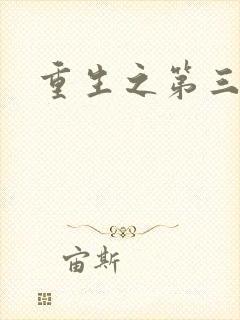 重生之第三
宙斯